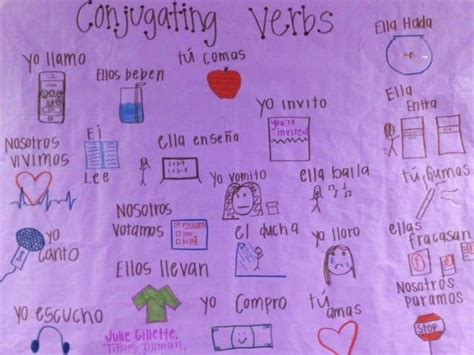 Conjugating Verbs
yo llamo
Ellos beben
tú comas
yo invito
you're
invited
Ella Hada
Ella
Entra
Nosotros
vivimos
Él
Lee
ella enseña
yo vomito
ella baila
tú fumas
yo
canto
Nosotros
votamos
el ducha
yo lloro
ellas
fracasan
Ellos llevan
Nosotros
paramos
STOP
yo escucho
Julie Gillette,
yo compro
tú
amas